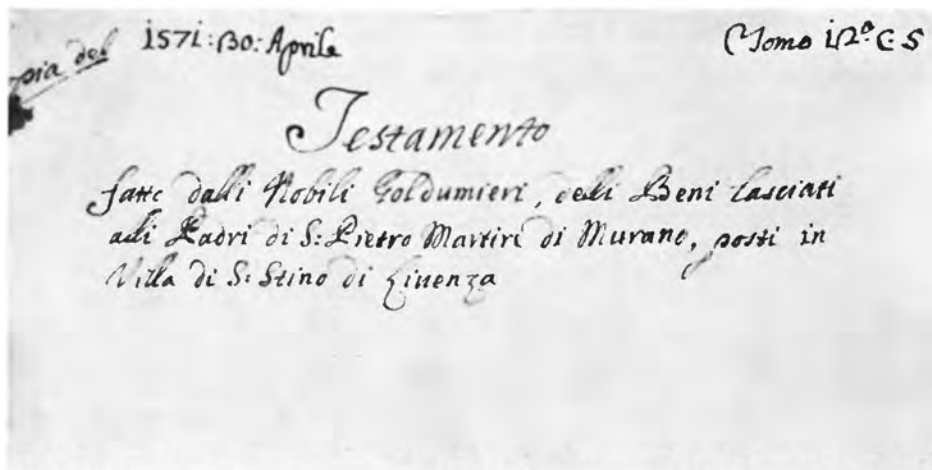 pia del 1571: 30: Aprile Tomo 12º C S
Testamento
fatto dalli Nobili Goldumieri, delli Beni lasciati
alli Padri di S: Pietro Martire di Murano, posti in
Villa di S: Stino di Liuenza